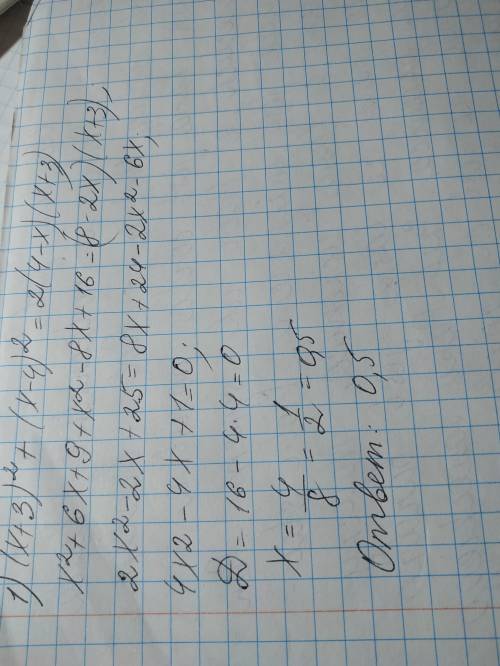 1) (x+3)² + (x-4)² = 2(4-x)(x+3)
x²+6x+9+x²-8x+16=(8-2x)(x+3);
2x²-2x+25=8x+24-2x²-6x;
4x2-4x+1=0;
D=16-4·4=0
x=4/8=1/2=0,5
Ответ: 0,5